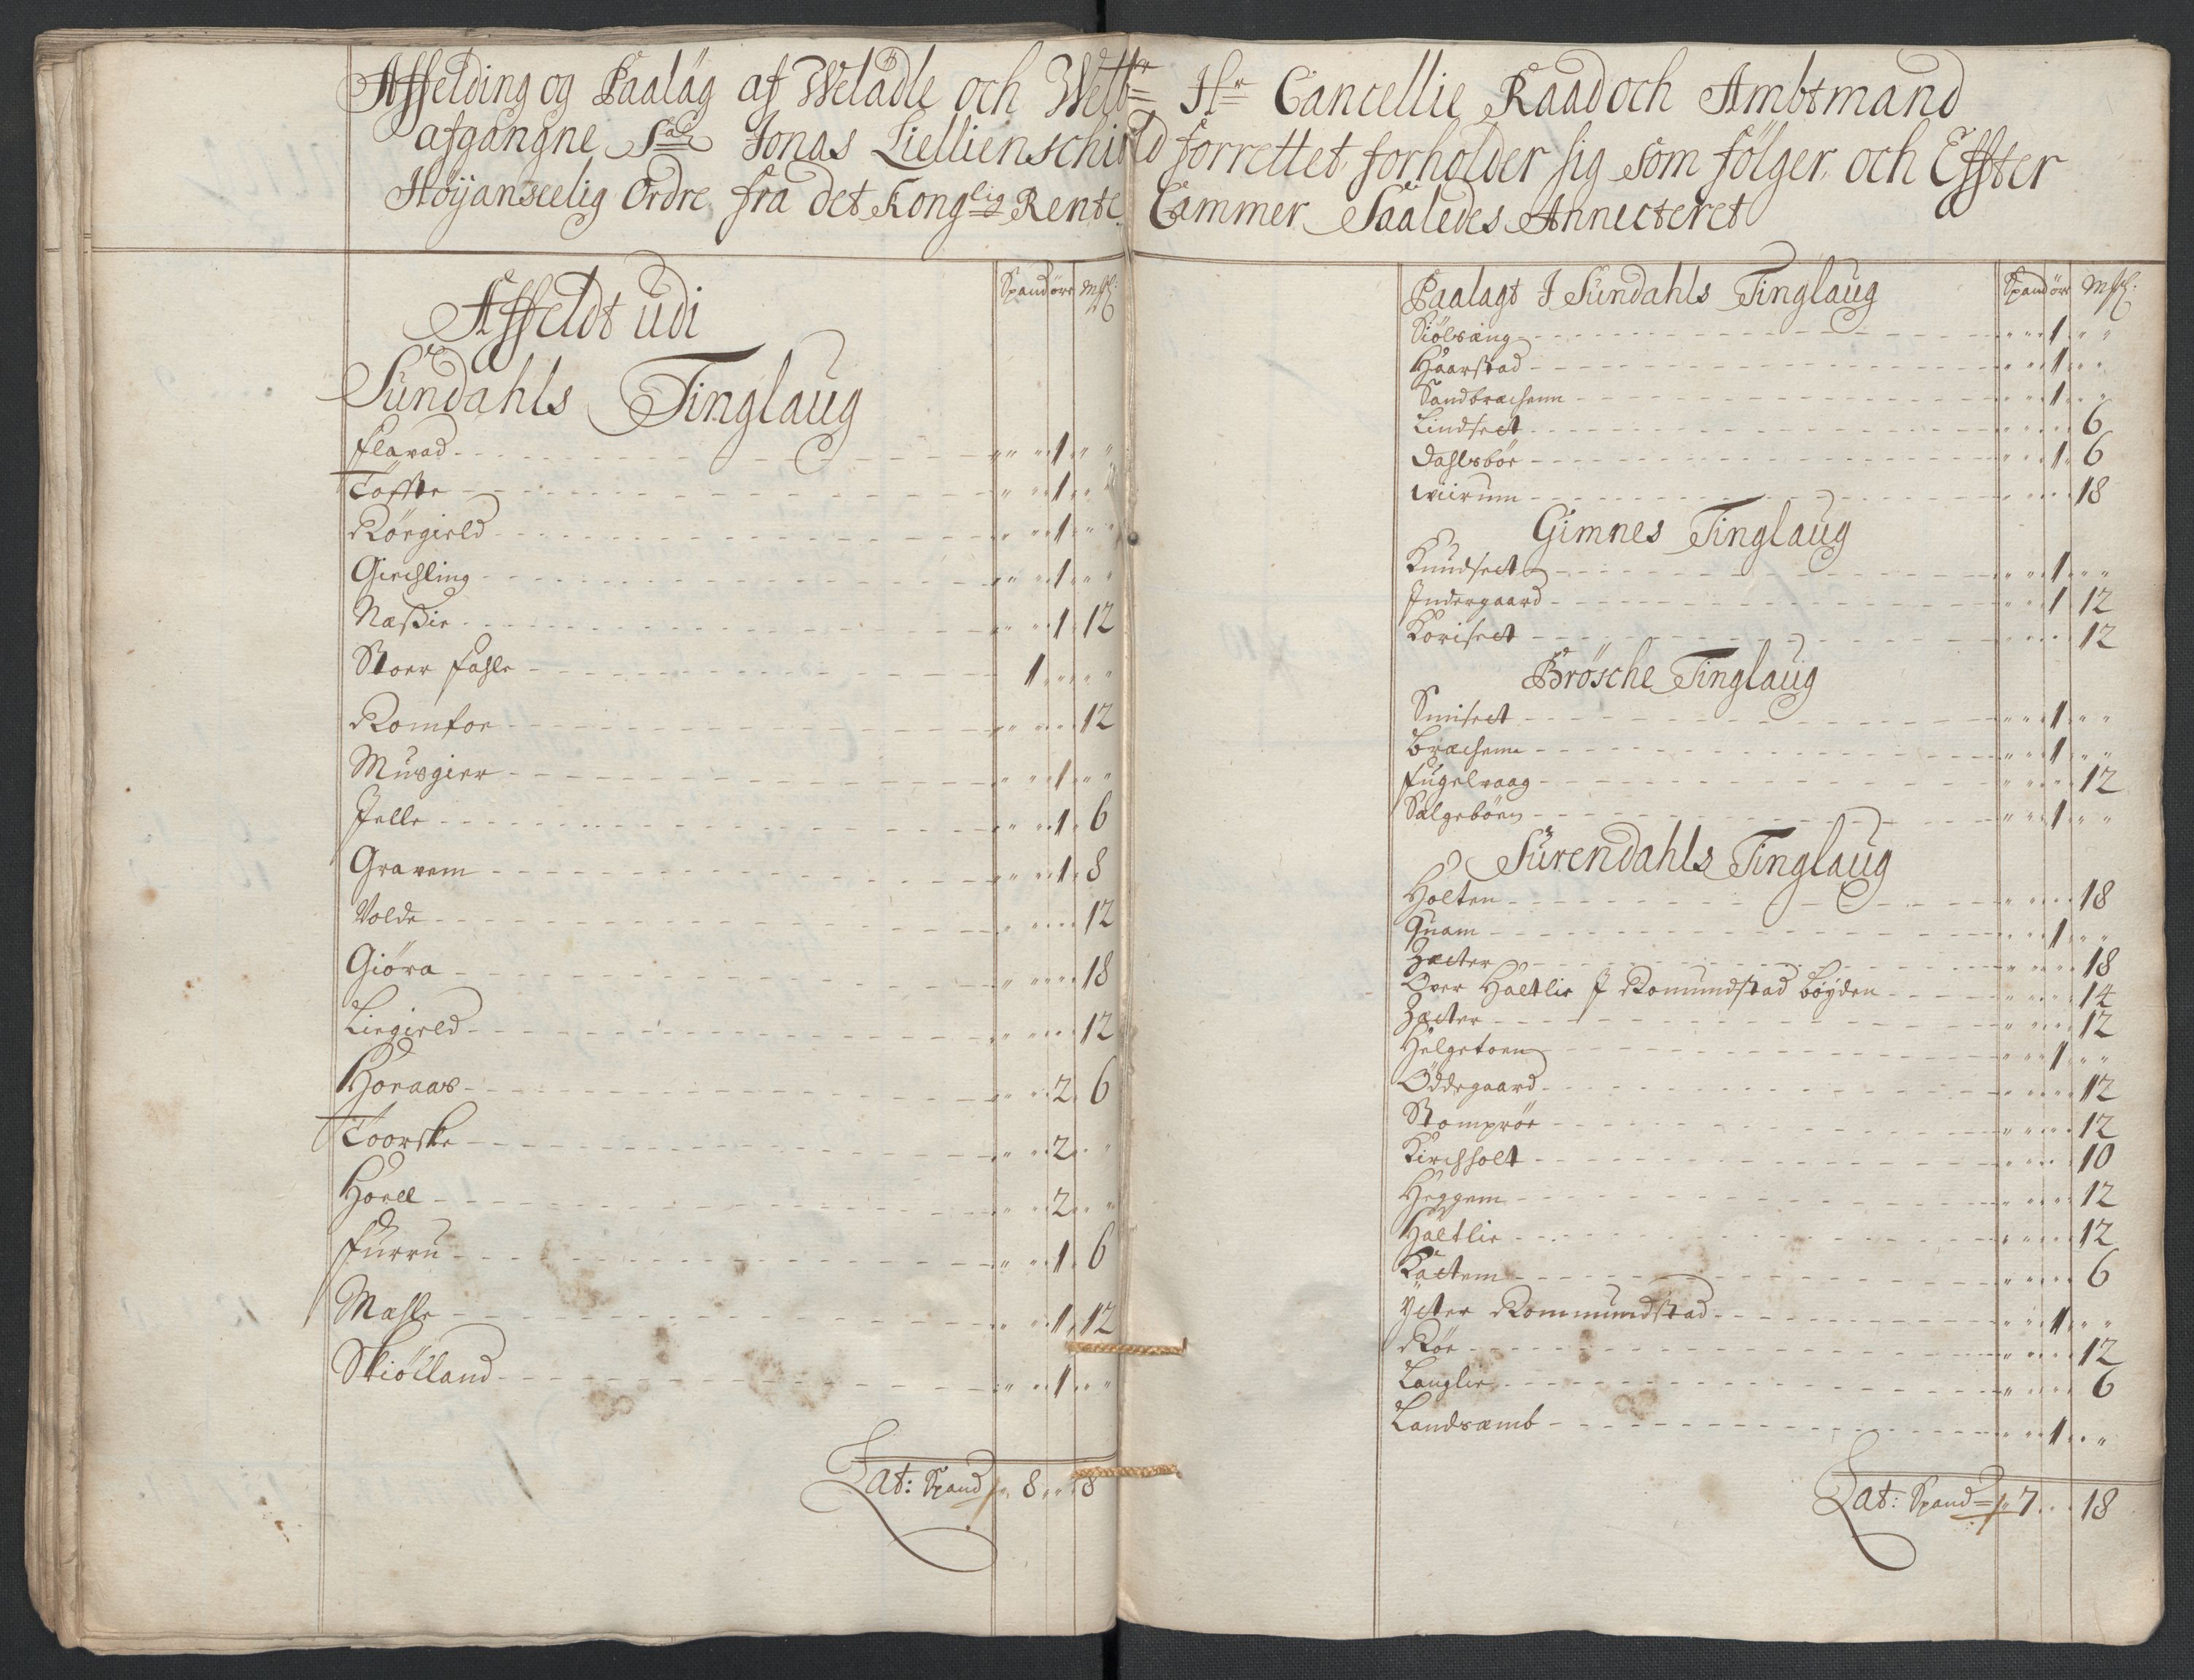 Affelding og Paalag af Welædle och Welb:ne Hr Cancellie Raad och Ambtmand
afgangne Sal Jonas Liellienschiold forrettet forholder sig som følger, och Effter
Høijanseelig Ordre fra det Konglig Rente Cammer Saaledes Annecteret
Affeldt udi
Spand øre Mkl:
Sundahls Tinglaug
Flavad 1
Toffte 1
Rørgield 1
Giechling 1
Næsie 1 12
Stoer fahle 1
Romfoe 12
Musgier 1
Jelle 1 6
Gravem 1 8
Volde 12
Giøra 18
Liegield 12
Horaas 2 6
Toorske 2
Hoell 2
Furru 1 6
Mæhle 1 12
Skiølland 1
Lat: Spand 8 8
Paalagt I Sundahls Tinglaug
Spand øre Mkl:
Siølsæng 1
Haarstad 1
Sandbrechenn 1
Lindsect 6
Dahlsbøe 1 6
Wiirum 18
Gimnes Tinglaug
Knudsect 1
Indergaard 1 12
Korisect 12
Brøsche Tinglaug
Smisect 1
Brechenn 1
Fugelvaag 12
Salgebøen 1
Surendahls Tinglaug
Holten 18
Quam 1
Zæter 18
Over Haltlie I Romundstad bøyden 14
Zæter 12
Helgetoen 1
Oddegaard 12
Stomprøe 12
Kirchholt 10
Heggem 12
Haltlie 12
Kactem 6
Ytter Rommundstad 1
Røe 12
Langlie 6
Landsæmb 1
Lat: Spand 7 18